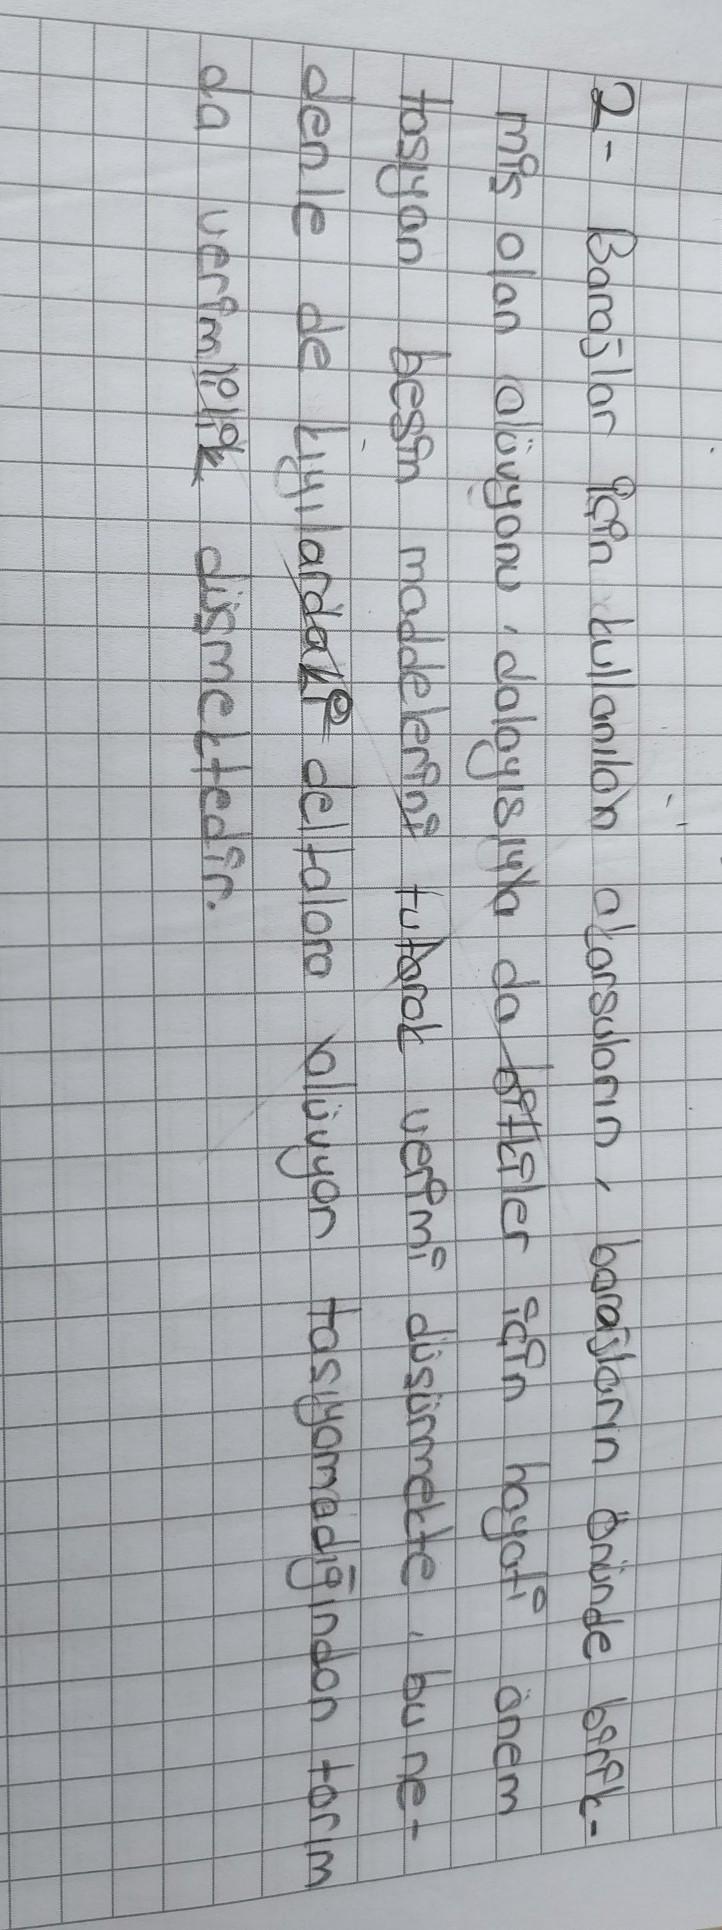 2- Barajlar için kullanılan akarsuların, barajların önünde birik-
miş olan alüvyonu, dolayısıyla da bitkiler için hayati önem
taşıyan besin maddelerini tutarak verimi düşürmekte, bu ne-
denle de kıyılardaki deltalara alüvyon taşıyamadığından tarım
da verimlilik düşmektedir.